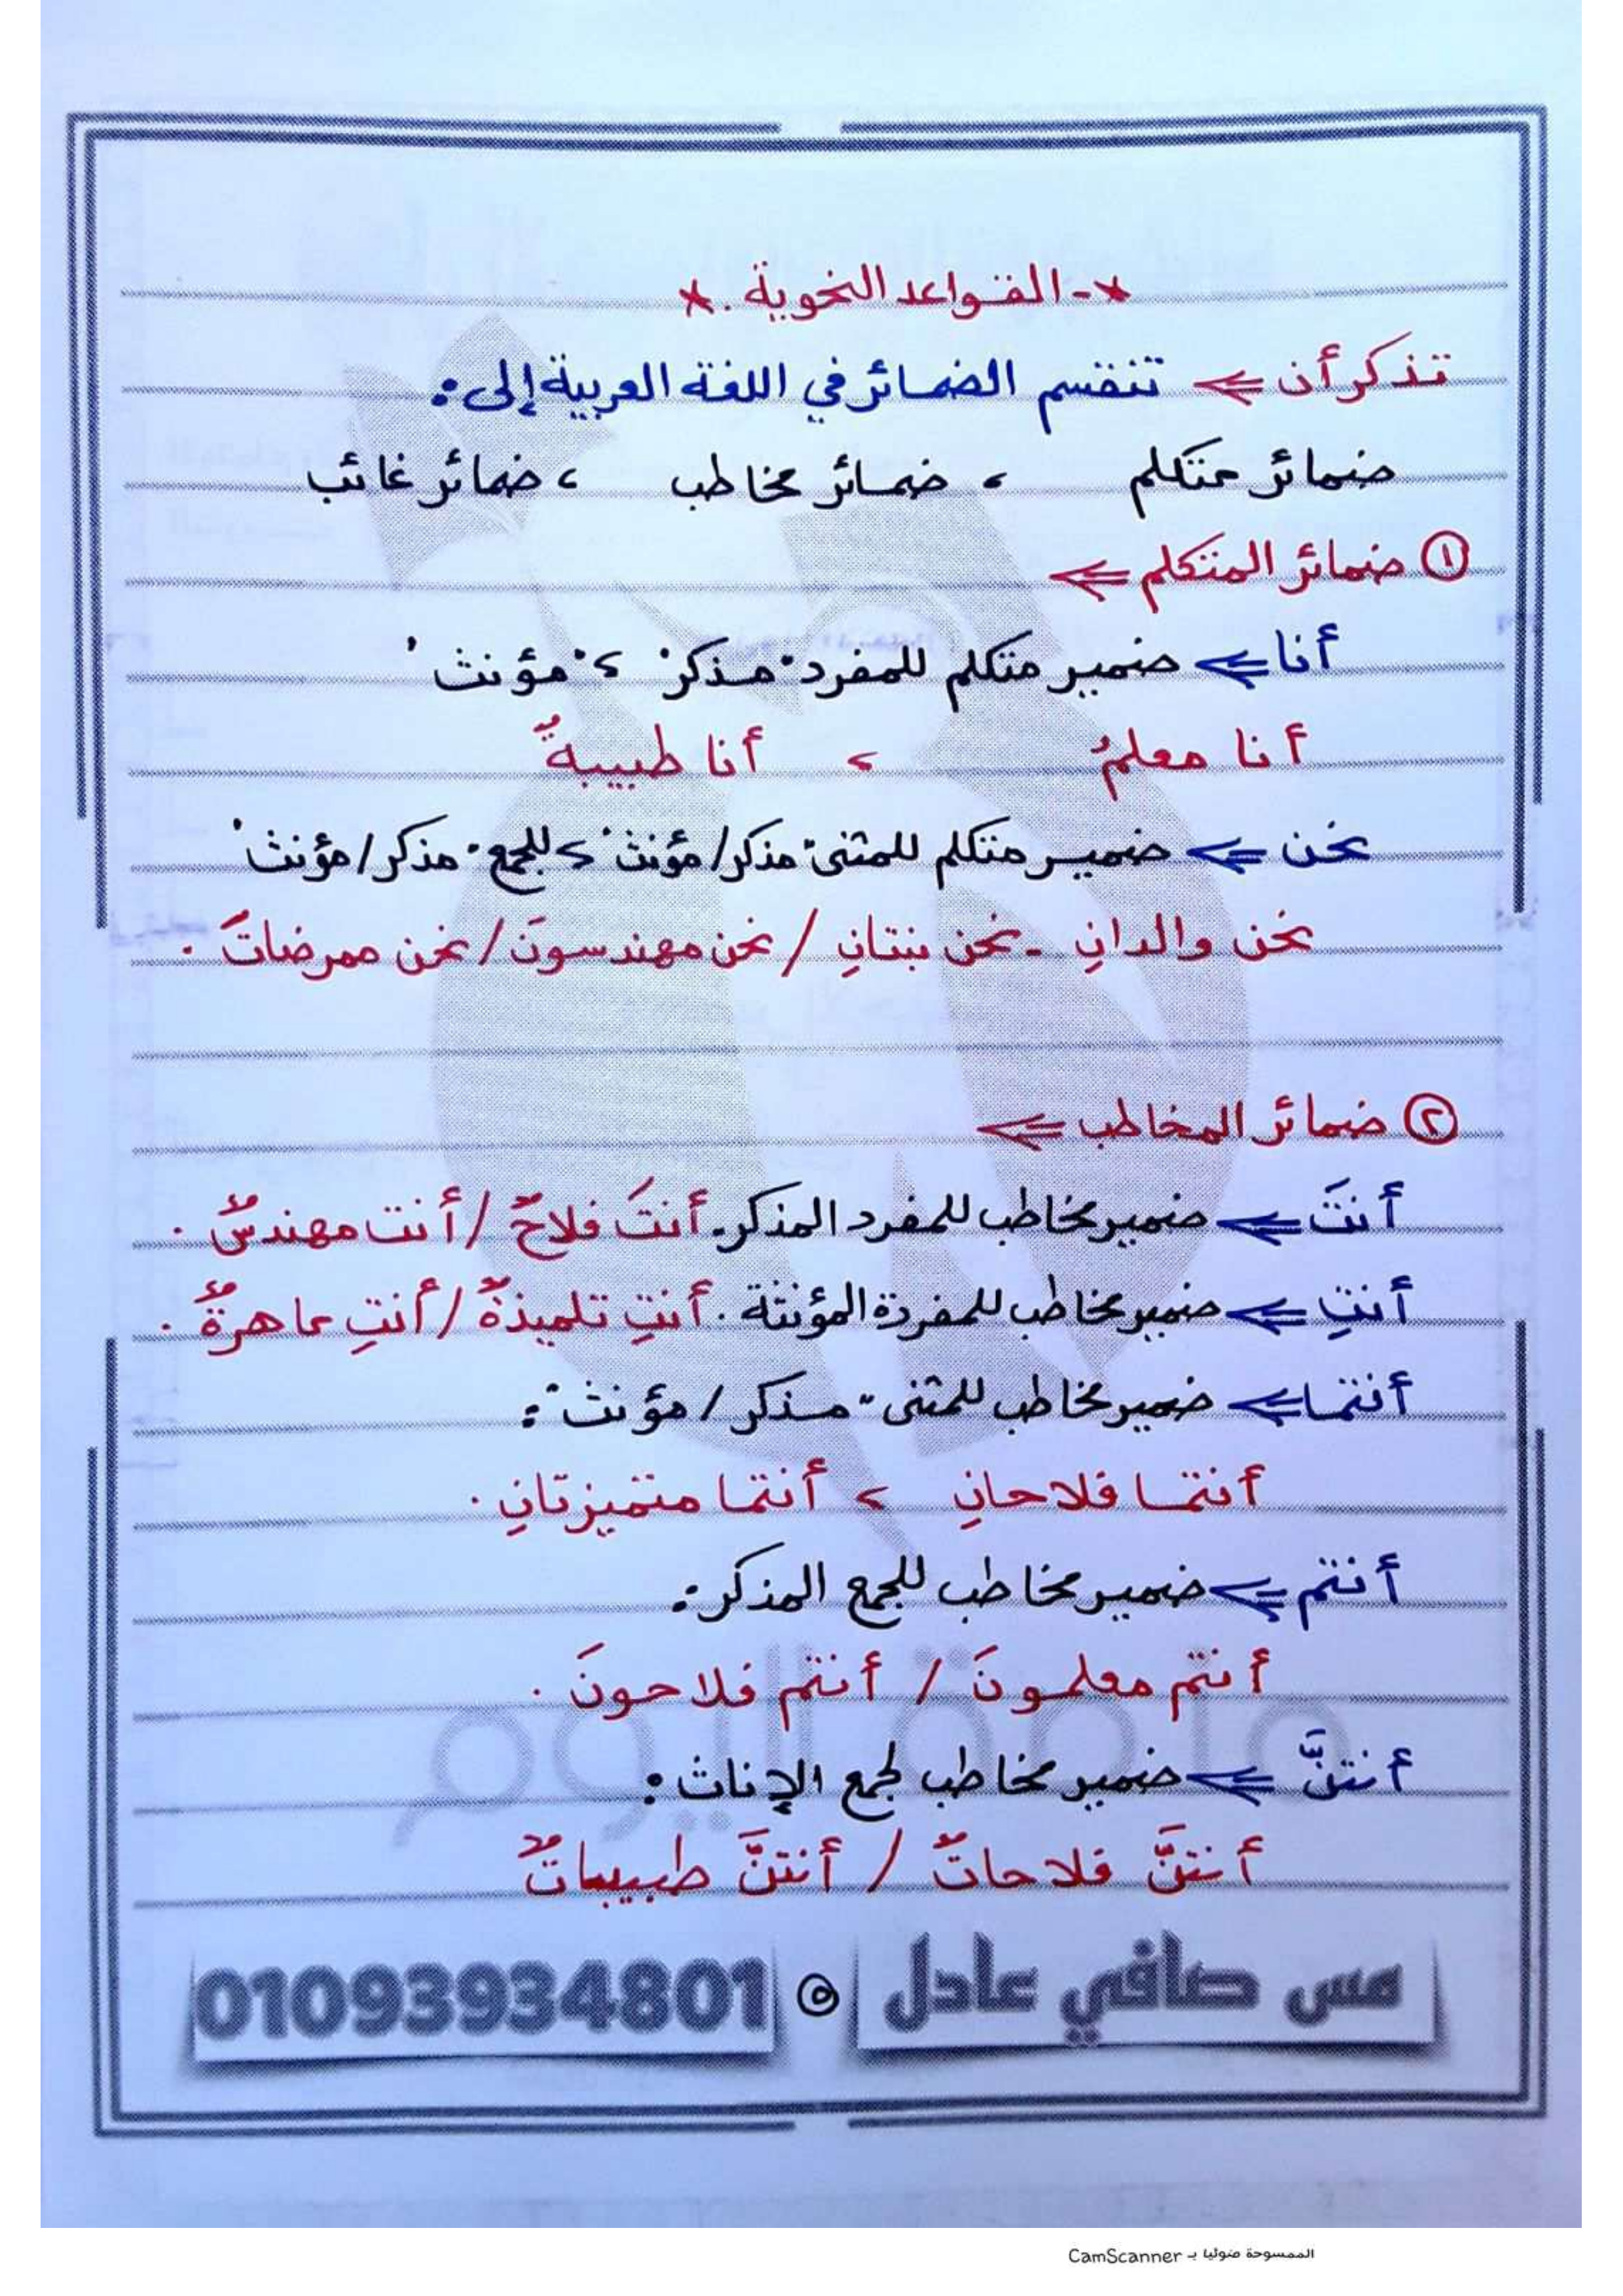 *- القواعد النحوية . *
تذكر أن ⇐ تنقسم الضمائر في اللغة العربية إلى :
ضمائر متكلم ، ضمائر مخاطب ، ضمائر غائب
① ضمائر المتكلم ⇐
أنا ⇐ ضمير متكلم للمفرد "مذكر" ، "مؤنث"
أنا معلمٌ ، أنا طبيبةٌ
نحن ⇐ ضمير متكلم للمثنى "مذكر/مؤنث" ، للجمع "مذكر/مؤنث"
نحن والدانِ - نحن بنتانِ / نحن مهندسونَ / نحن ممرضاتٌ .
② ضمائر المخاطب ⇐
أنتَ ⇐ ضمير مخاطب للمفرد المذكر. أنتَ فلاحٌ / أنت مهندسٌ .
أنتِ ⇐ ضمير مخاطب للمفردة المؤنثة . أنتِ تلميذةٌ / أنتِ ماهرةٌ .
أنتما ⇐ ضمير مخاطب للمثنى "مذكر / مؤنث" :
أنتما فلاحانِ ، أنتما متميزتانِ .
أنتم ⇐ ضمير مخاطب للجمع المذكر :
أنتم معلمونَ / أنتم فلاحونَ .
أنتنَّ ⇐ ضمير مخاطب لجمع الإناث :
أنتنَّ فلاحاتٌ / أنتنَّ طبيباتٌ
مس صافي عادل ٥ 01093934801
الممسوحة ضوئيا بـ CamScanner